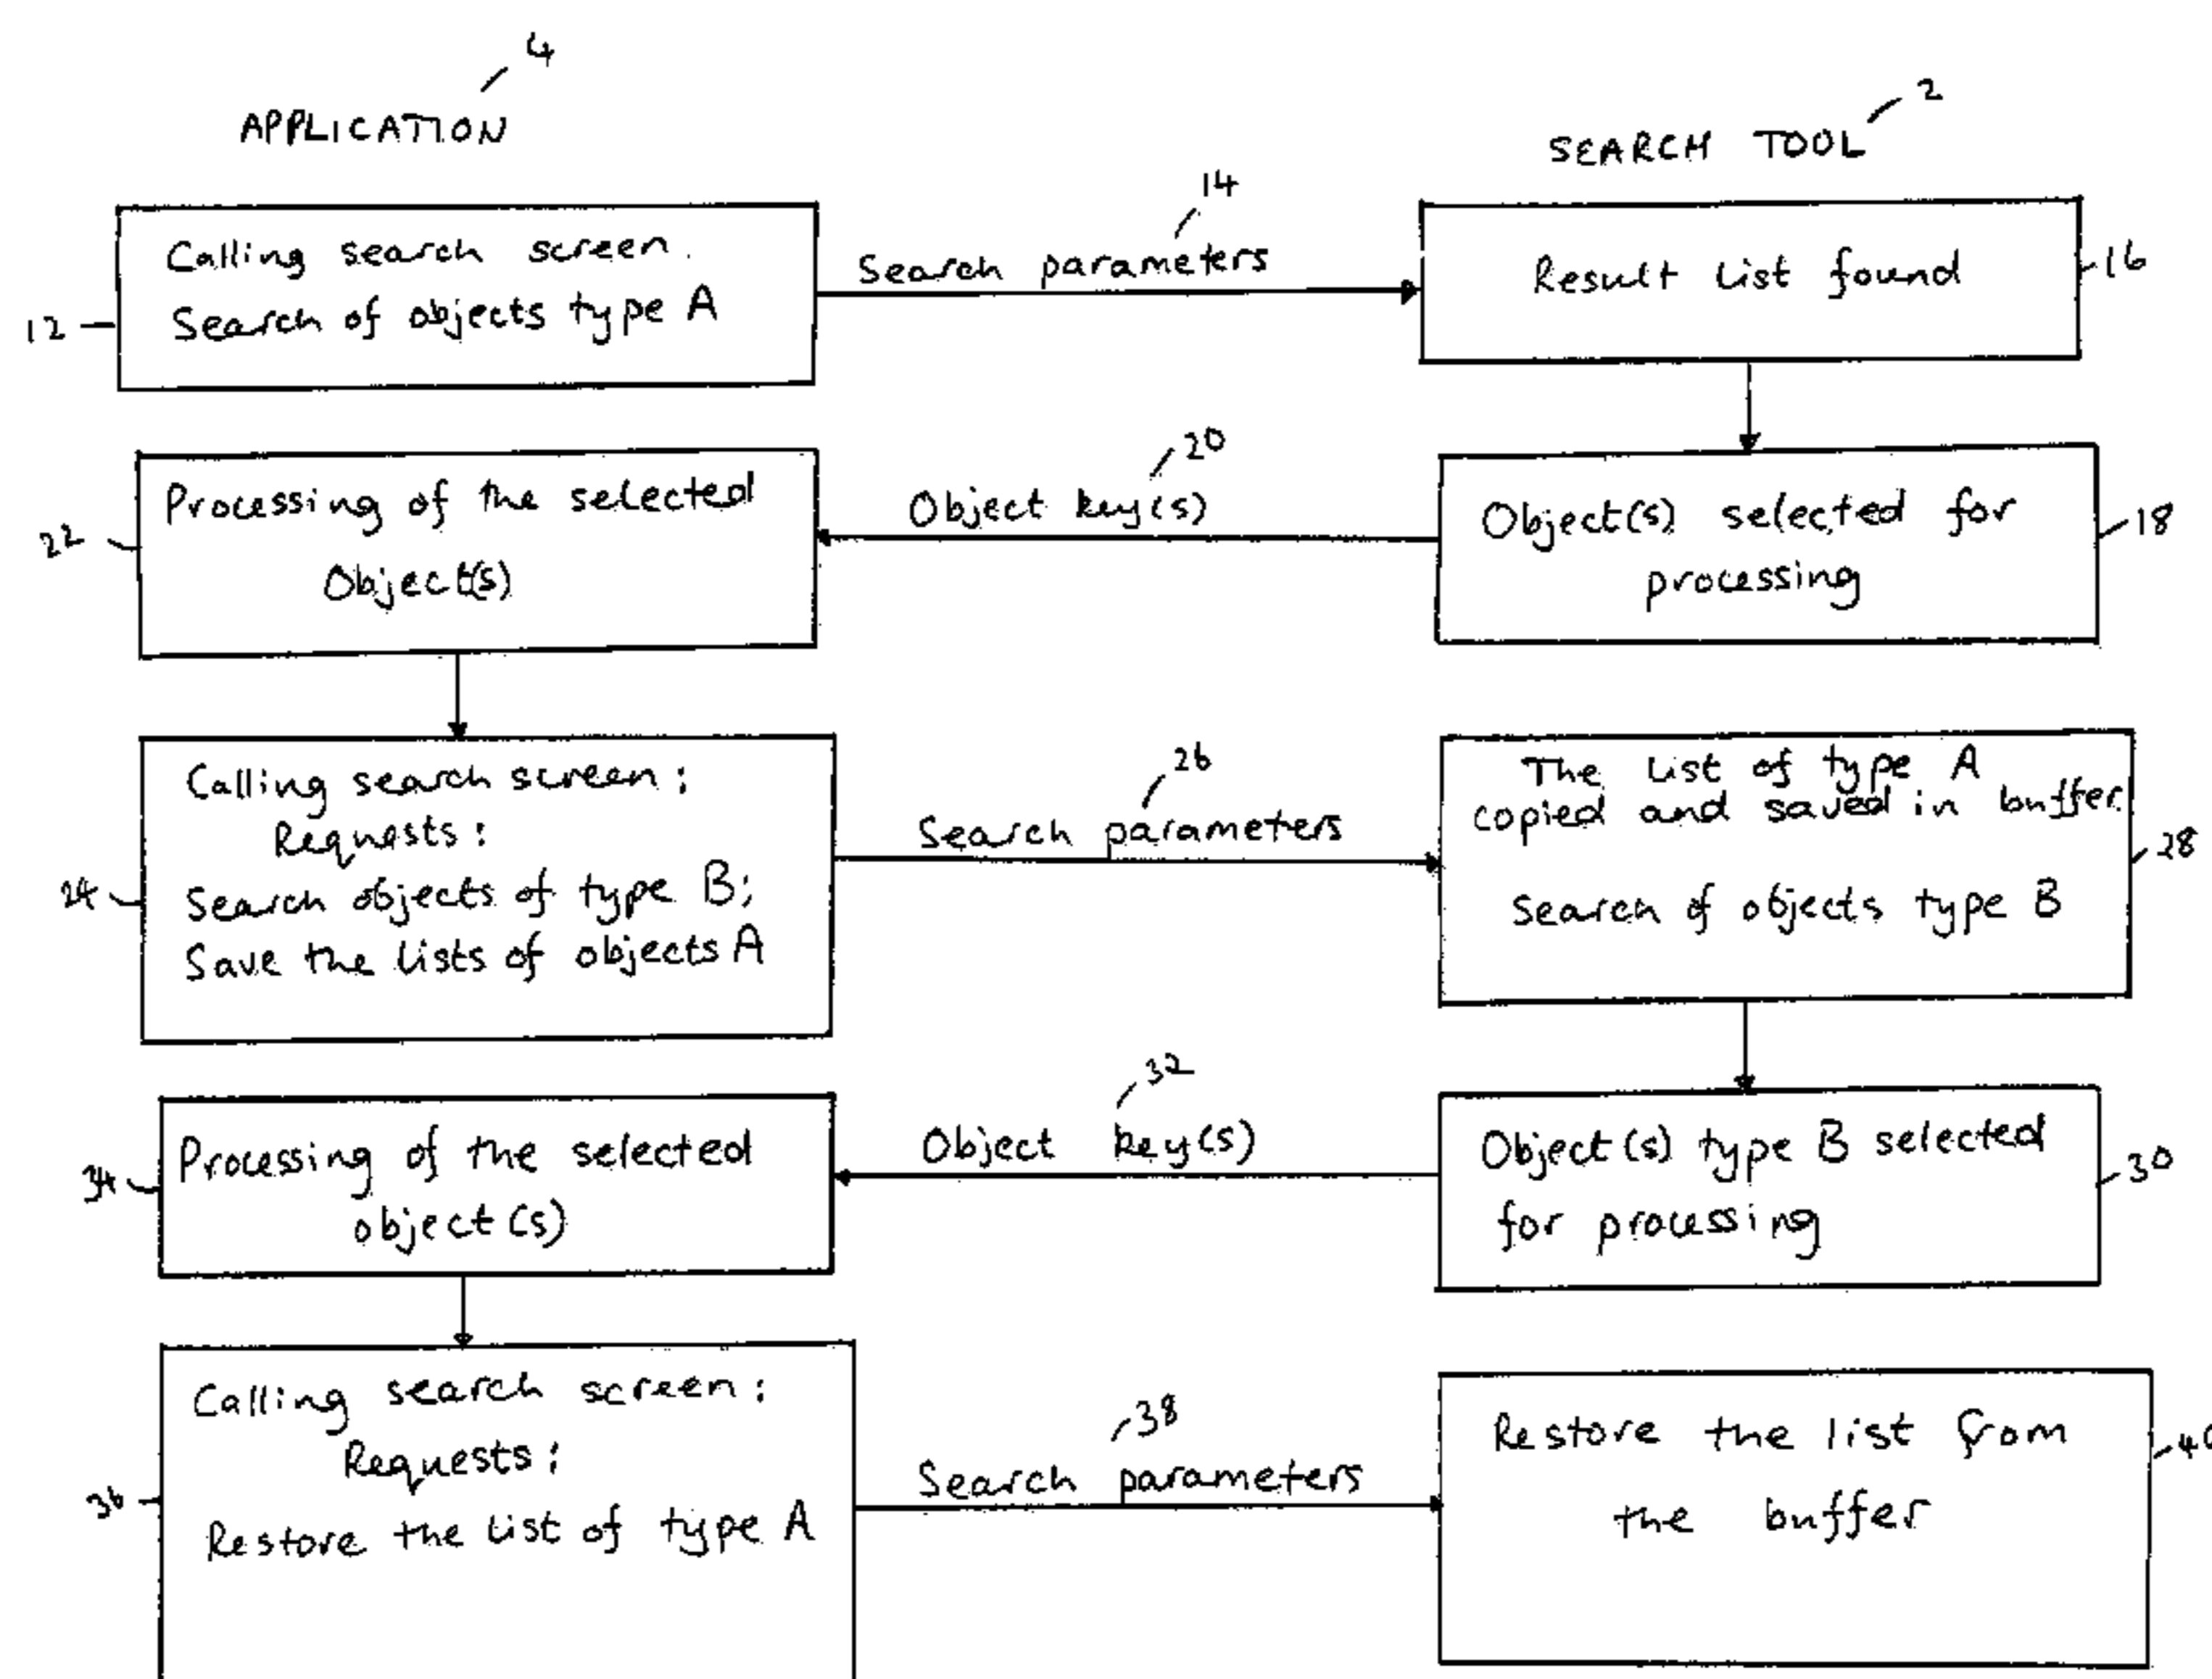 4
APPLICATION
2
SEARCH TOOL
12
Calling search screen.
Search of objects type A
14
Search parameters
Result list found
16
22
Processing of the selected
Object(s)
20
Object key(s)
Object(s) selected for
processing
18
24
Calling search screen:
Requests:
Search objects of type B;
Save the lists of objects A
26
Search parameters
The list of type A
copied and saved in buffer
Search of objects type B
28
34
Processing of the selected
object(s)
32
Object key(s)
Object(s) type B selected
for processing
30
36
Calling search screen:
Requests:
Restore the list of type A
38
Search parameters
Restore the list from
the buffer
40